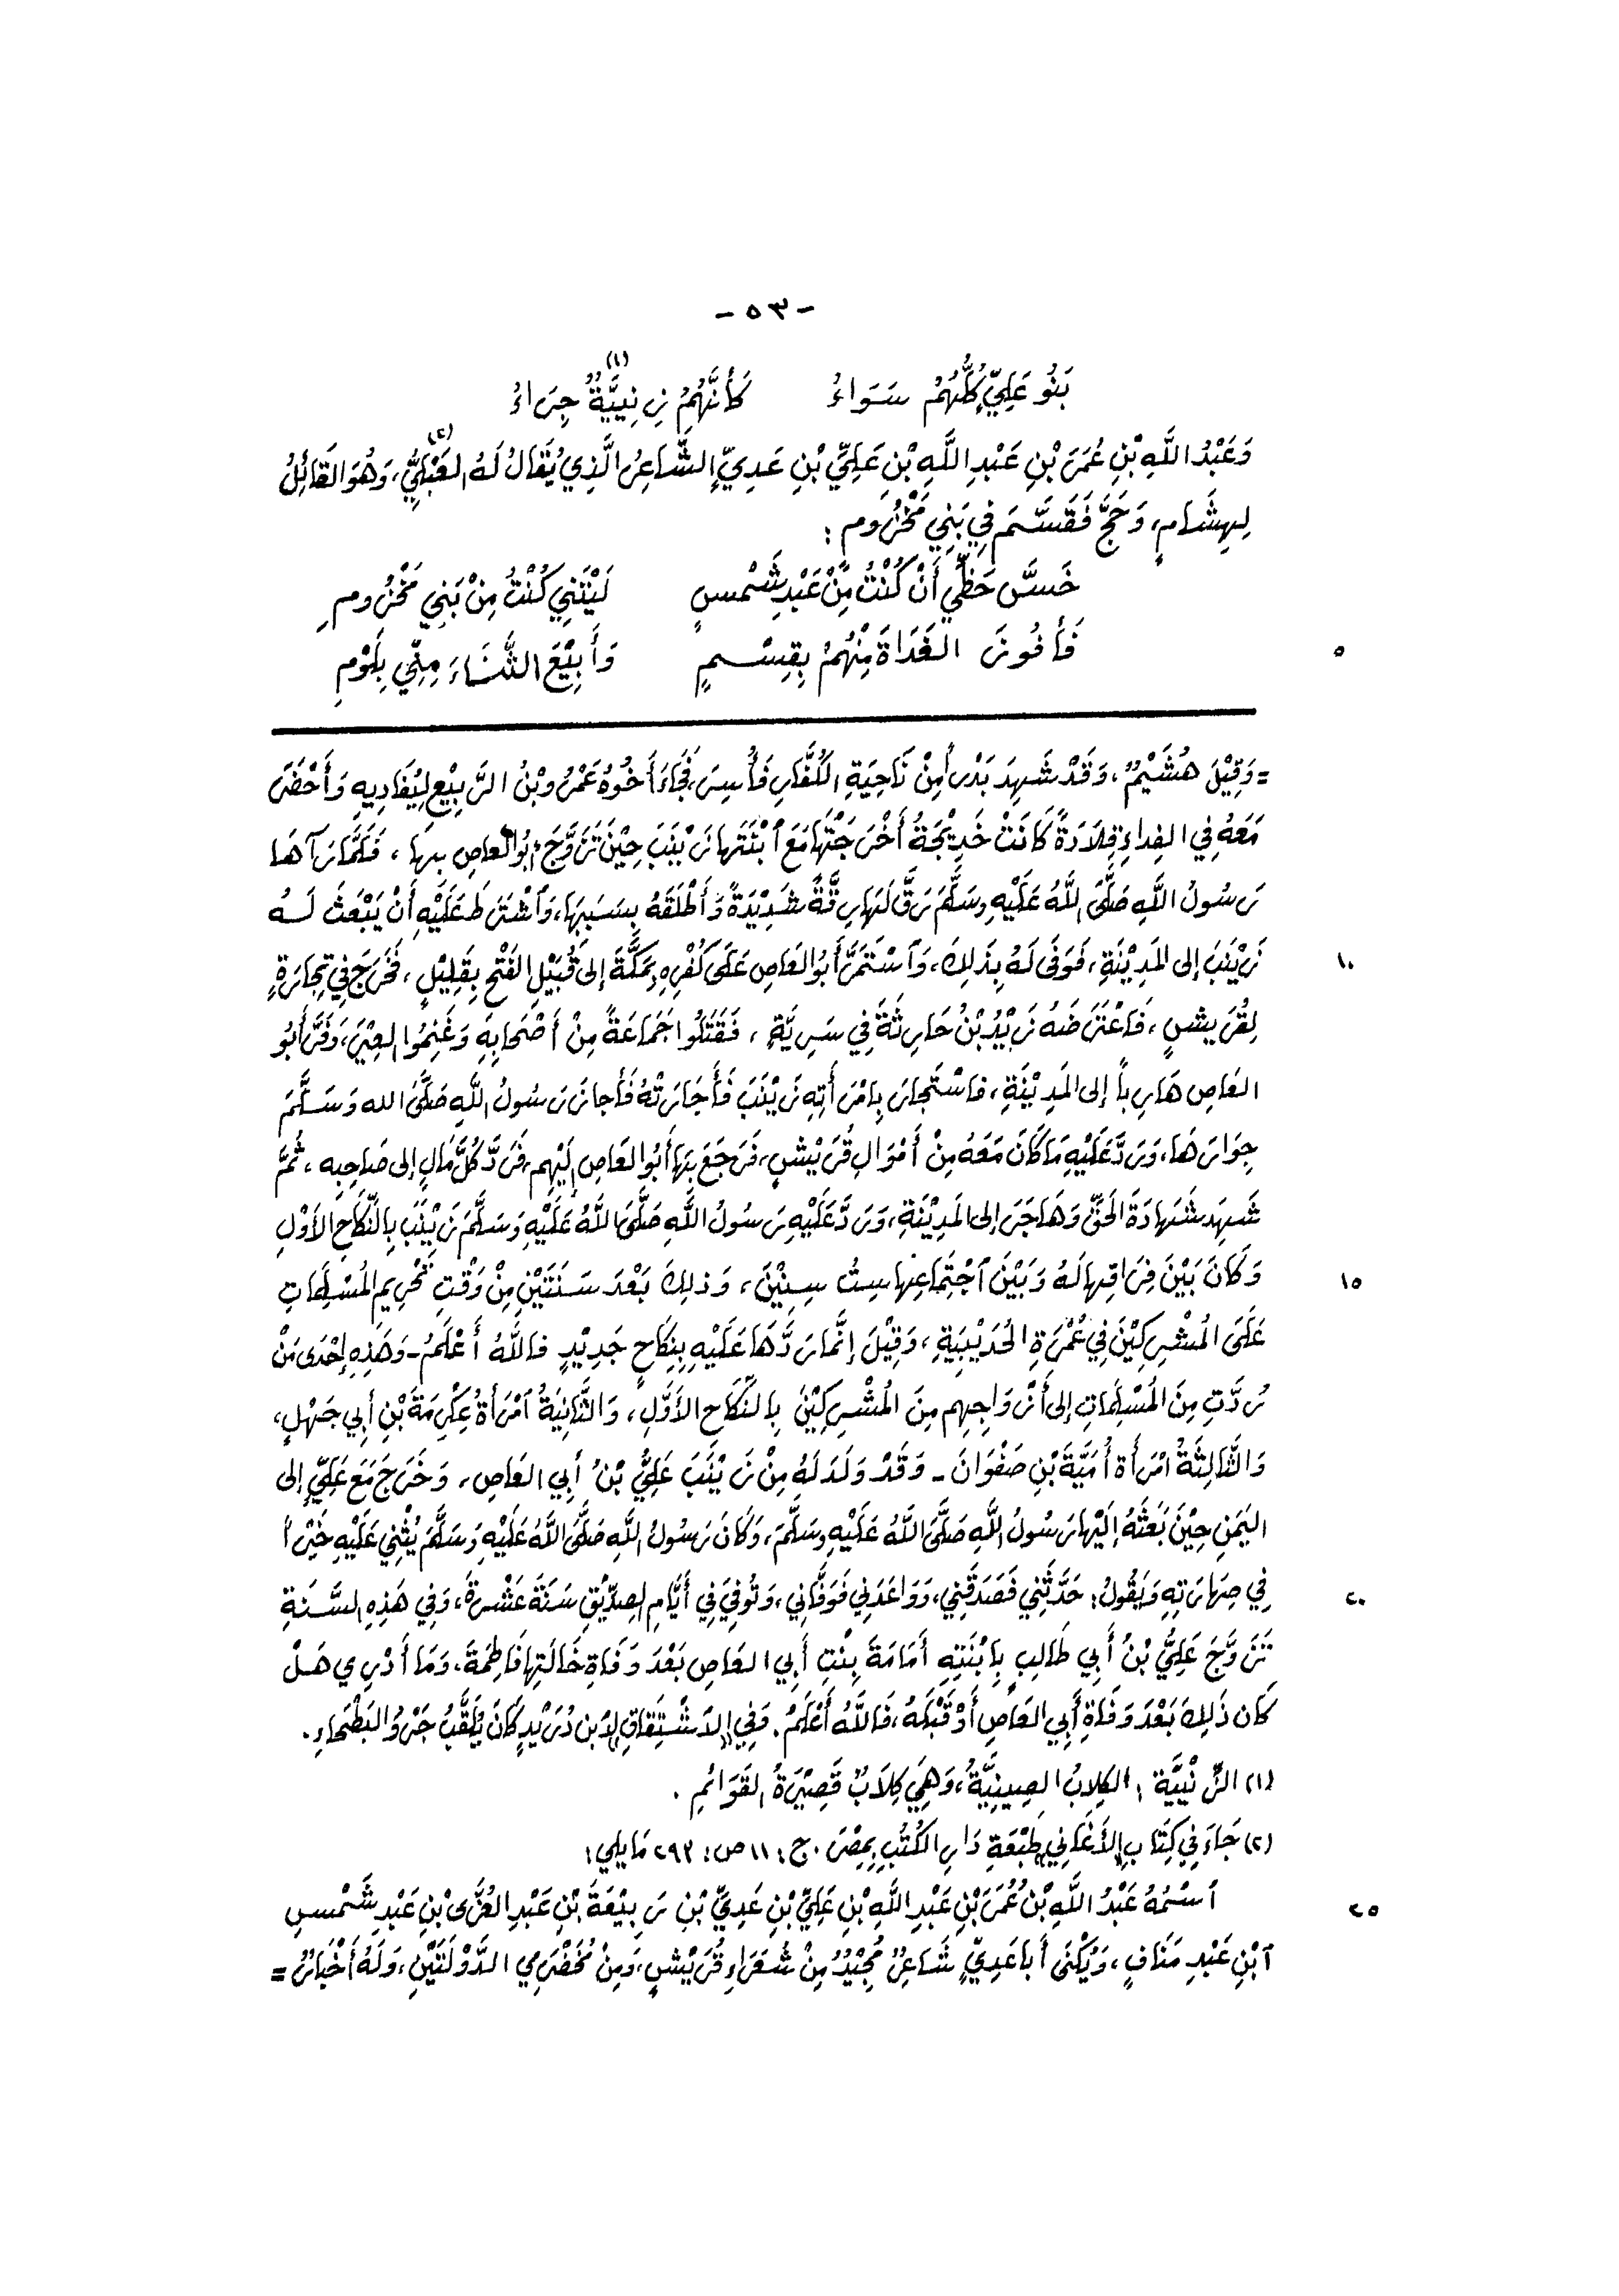 - ٥٣ -
بَنُو عَلِيٍّ كُلُّهُمْ سَوَاءُ كَأَنَّهُمْ زِنِيِّيَّةٌ جِرَاءُ (١)
وَعَبْدُ اللَّهِ بْنِ عُمَرَ بْنِ عَبْدِ اللَّهِ بْنِ عَلِيِّ بْنِ عَدِيٍّ الشَّاعِرُ الَّذِي يُقَالُ لَهُ العَبْلِيُّ (٢)، وَهُوَ القَائِلُ
لِهِشَامٍ، وَحَجَّ فَقَسَّمَ فِي بَنِي مَخْزُومٍ :
خَسَّ حَظِّي أَنْ كُنْتُ مِنْ عَبْدِ شَمْسٍ لَيْتَنِي كُنْتُ مِنْ بَنِي مَخْزُومِ
٥ فَأَفُوزَ الغَدَاةَ مِنْهُمْ بِقِسْمٍ وَأَبِيْعَ الثَّنَاءَ مِنِّي بِلَوْمِ
= وَقِيْلَ هُشَيْمٌ، وَقَدْ شَهِدَ بَدْراً مِنْ نَاحِيَةِ الكُفَّارِ فَأُسِرَ، فَجَاءَ أَخُوهُ عَمْرُو بْنُ الرَّبِيْعِ لِيُفَادِيهِ وَأَحْضَرَ
مَعَهُ فِي الفِدَاءِ قِلَادَةً كَانَتْ خَدِيْجَةُ أَخْرَجَتْهَا مَعَ ٱبْنَتِهَا زَيْنَبَ حِيْنَ تَزَوَّجَ أَبُو العاصِ بِهَا، فَلَمَّا رَآهَا
رَسُولُ اللَّهِ صَلَّى اللَّهُ عَلَيْهِ وسَلَّمَ رَقَّ لَهَا رِقَّةً شَدِيْدَةً وَأَطْلَقَهُ بِسَبَبِهَا، وَٱشْتَرَطَ عَلَيْهِ أَنْ يَبْعَثَ لَهُ
١٠ زَيْنَبَ إلى المَدِيْنَةِ، فَوَفَى لَهُ بِذَلِكَ، وَٱسْتَمَرَّ أَبُو العَاصِ عَلَى كُفْرِهِ بِمَكَّةَ إلى قُبَيْلِ الفَتْحِ بِقَلِيْلٍ، فَخَرَجَ فِي تِجَارَةٍ
لِقُرَيشٍ، فَاعْتَرَضَهُ زَيْدُ بْنُ حَارِثَةَ فِي سَرِيَّةٍ، فَقَتَلُوا جَمَاعَةً مِنْ أَصْحَابِهِ وَغَنِمُوا العِيْرَ، وَفَرَّ أَبُو
العَاصِ هَارِباً إلى المَدِيْنَةِ، فاسْتَجَارَ بِامْرَأَتِهِ زَيْنَبَ فَأَجَارَتْهُ فَأَجازَ رَسُولُ اللَّهِ صَلَّى الله وَسَلَّمَ
جِوَارَهَا، وَرَدَّ عَلَيْهِ مَا كَانَ مَعَهُ مِنْ أَمْوَالِ قُرَيْشٍ، فَرَجَعَ بِهَا أَبُو العَاصِ إِلَيْهِم، فَرَدَّ كُلَّ مَالٍ إلى صَاحِبِهِ، ثُمَّ
شَهِدَ شَهَادَةَ الحَقِّ وَهَاجَرَ إلى المَدِيْنَةِ، وَرَدَّ عَلَيْهِ رَسُولُ اللَّهِ صَلَّى اللَّهُ عَلَيْهِ وَسَلَّمَ زَيْنَبَ بِالنِّكَاحِ الأَوْلِ
١٥ وَكَانَ بَيْنَ فِرَاقِها لَهُ وَبَيْنَ ٱجْتِمَاعِها سِتُّ سِنِيْنَ، وَذلِكَ بَعْدَ سَنَتَيْنِ مِنْ وَقْتِ تَحْرِيمِ المُسْلِمَاتِ
عَلَى المُشْرِكِيْنَ فِي عُمْرَةِ الحُدَيْبِيَةِ، وَقِيْلَ إِنَّمَا رَدَّهَا عَلَيْهِ بِنِكَاحٍ جَدِيْدٍ فاللَّهُ أَعْلَمُ - وَهَذِهِ إحْدَى مَنْ
رُدَّتِ مِنَ المُسْلِمَاتِ إلى أَزْوَاجِهِم مِنَ المُشْرِكِيْنَ بِالنِّكَاحِ الأَوَّلِ، وَالثَّانِيَةُ ٱمْرَأَةُ عِكْرِمَةَ بْنِ أَبِي جَهْلٍ،
وَالثَّالِثَةُ امْرَأَة أُمَيَّةَ بْنِ صَفْوَانَ - وَقَدْ وَلَدَ لَهُ مِنْ زَيْنَبَ عَلِيُّ بْنُ أبِي العَاصِ، وَخَرَجَ مَعَ عَلِيٍّ إلى
اليَمَنِ حِيْنَ بَعَثَهُ إلَيْها رَسُولُ اللَّهِ صَلَّى اللَّهُ عَلَيْهِ وسَلَّمَ، وَكَانَ رَسُولُ اللَّهِ صَلَّى اللَّهُ عَلَيْهِ وَسَلَّمَ يُثْنِي عَلَيْهِ خَيْراً
٢٠ فِي صِهَارَتِهِ وَيَقُولُ: حَدَّثَنِي فَصَدَقَنِي، وَوَاعَدَنِي فَوَفَانِي، وَتُوفِيَ فِي أَيَّامِ الصِدِّيْقِ سَنَةَ عَشْرَةَ، وَفِي هَذِهِ السَّنَةِ
تَزَوَّجَ عَلِيُّ بْنُ أَبِي طَالِبٍ بِابْنَتِهِ أُمَامَةَ بِنْتِ أَبِي العَاصِ بَعْدَ وَفَاةِ خَالَتِها فَاطِمَةَ، وَمَا أَدْرِي هَلْ
كَان ذَلِكَ بَعْدَ وَفَاةِ أَبِي العَاصِ أَوْ قَبْلَهُ، فَاللَّهُ أَعْلَمُ. وَفِي «الاشْتِقَاقِ» لابن دُرَيْدٍ كَانَ يُلَقَّبُ جَرْوُ البَطْحَاءِ.
(١) الزِّنْيِيَّة : الكِلابُ الصِينِيَّةُ، وَهِيَ كِلاَبٌ قَصِيْرَةُ القَوَائمِ.
(٢) جَاءَ فِي كِتَابِ «الأَغَانِي» طَبْعَةِ دَارِ الكُتُبِ بِمِصْرَ. ج: ١١ ص: ٢٩٣ مَايلي:
٢٥ ٱسْمُهُ عَبْدُ اللَّهِ بْنُ عُمَرَ بْنِ عَبْدِ اللَّهِ بْنِ عَلِيِّ بْنِ عَدِيِّ بْنِ رَبِيْعَةَ بْنِ عَبْدِ العُزَّى بْنِ عَبْدِ شَمْسِ
ٱبْنِ عَبْدِ مَنَافٍ، وَيُكْنَى أَبا عَدِيٍّ شَاعِرٌ مُجِيْدٌ مِنْ شُعَرَاءِ قُرَيْشٍ، وَمِنْ مُخَضْرَمِي الدَّوْلَتَيْنِ، وَلَهُ أَخْبَارٌ =